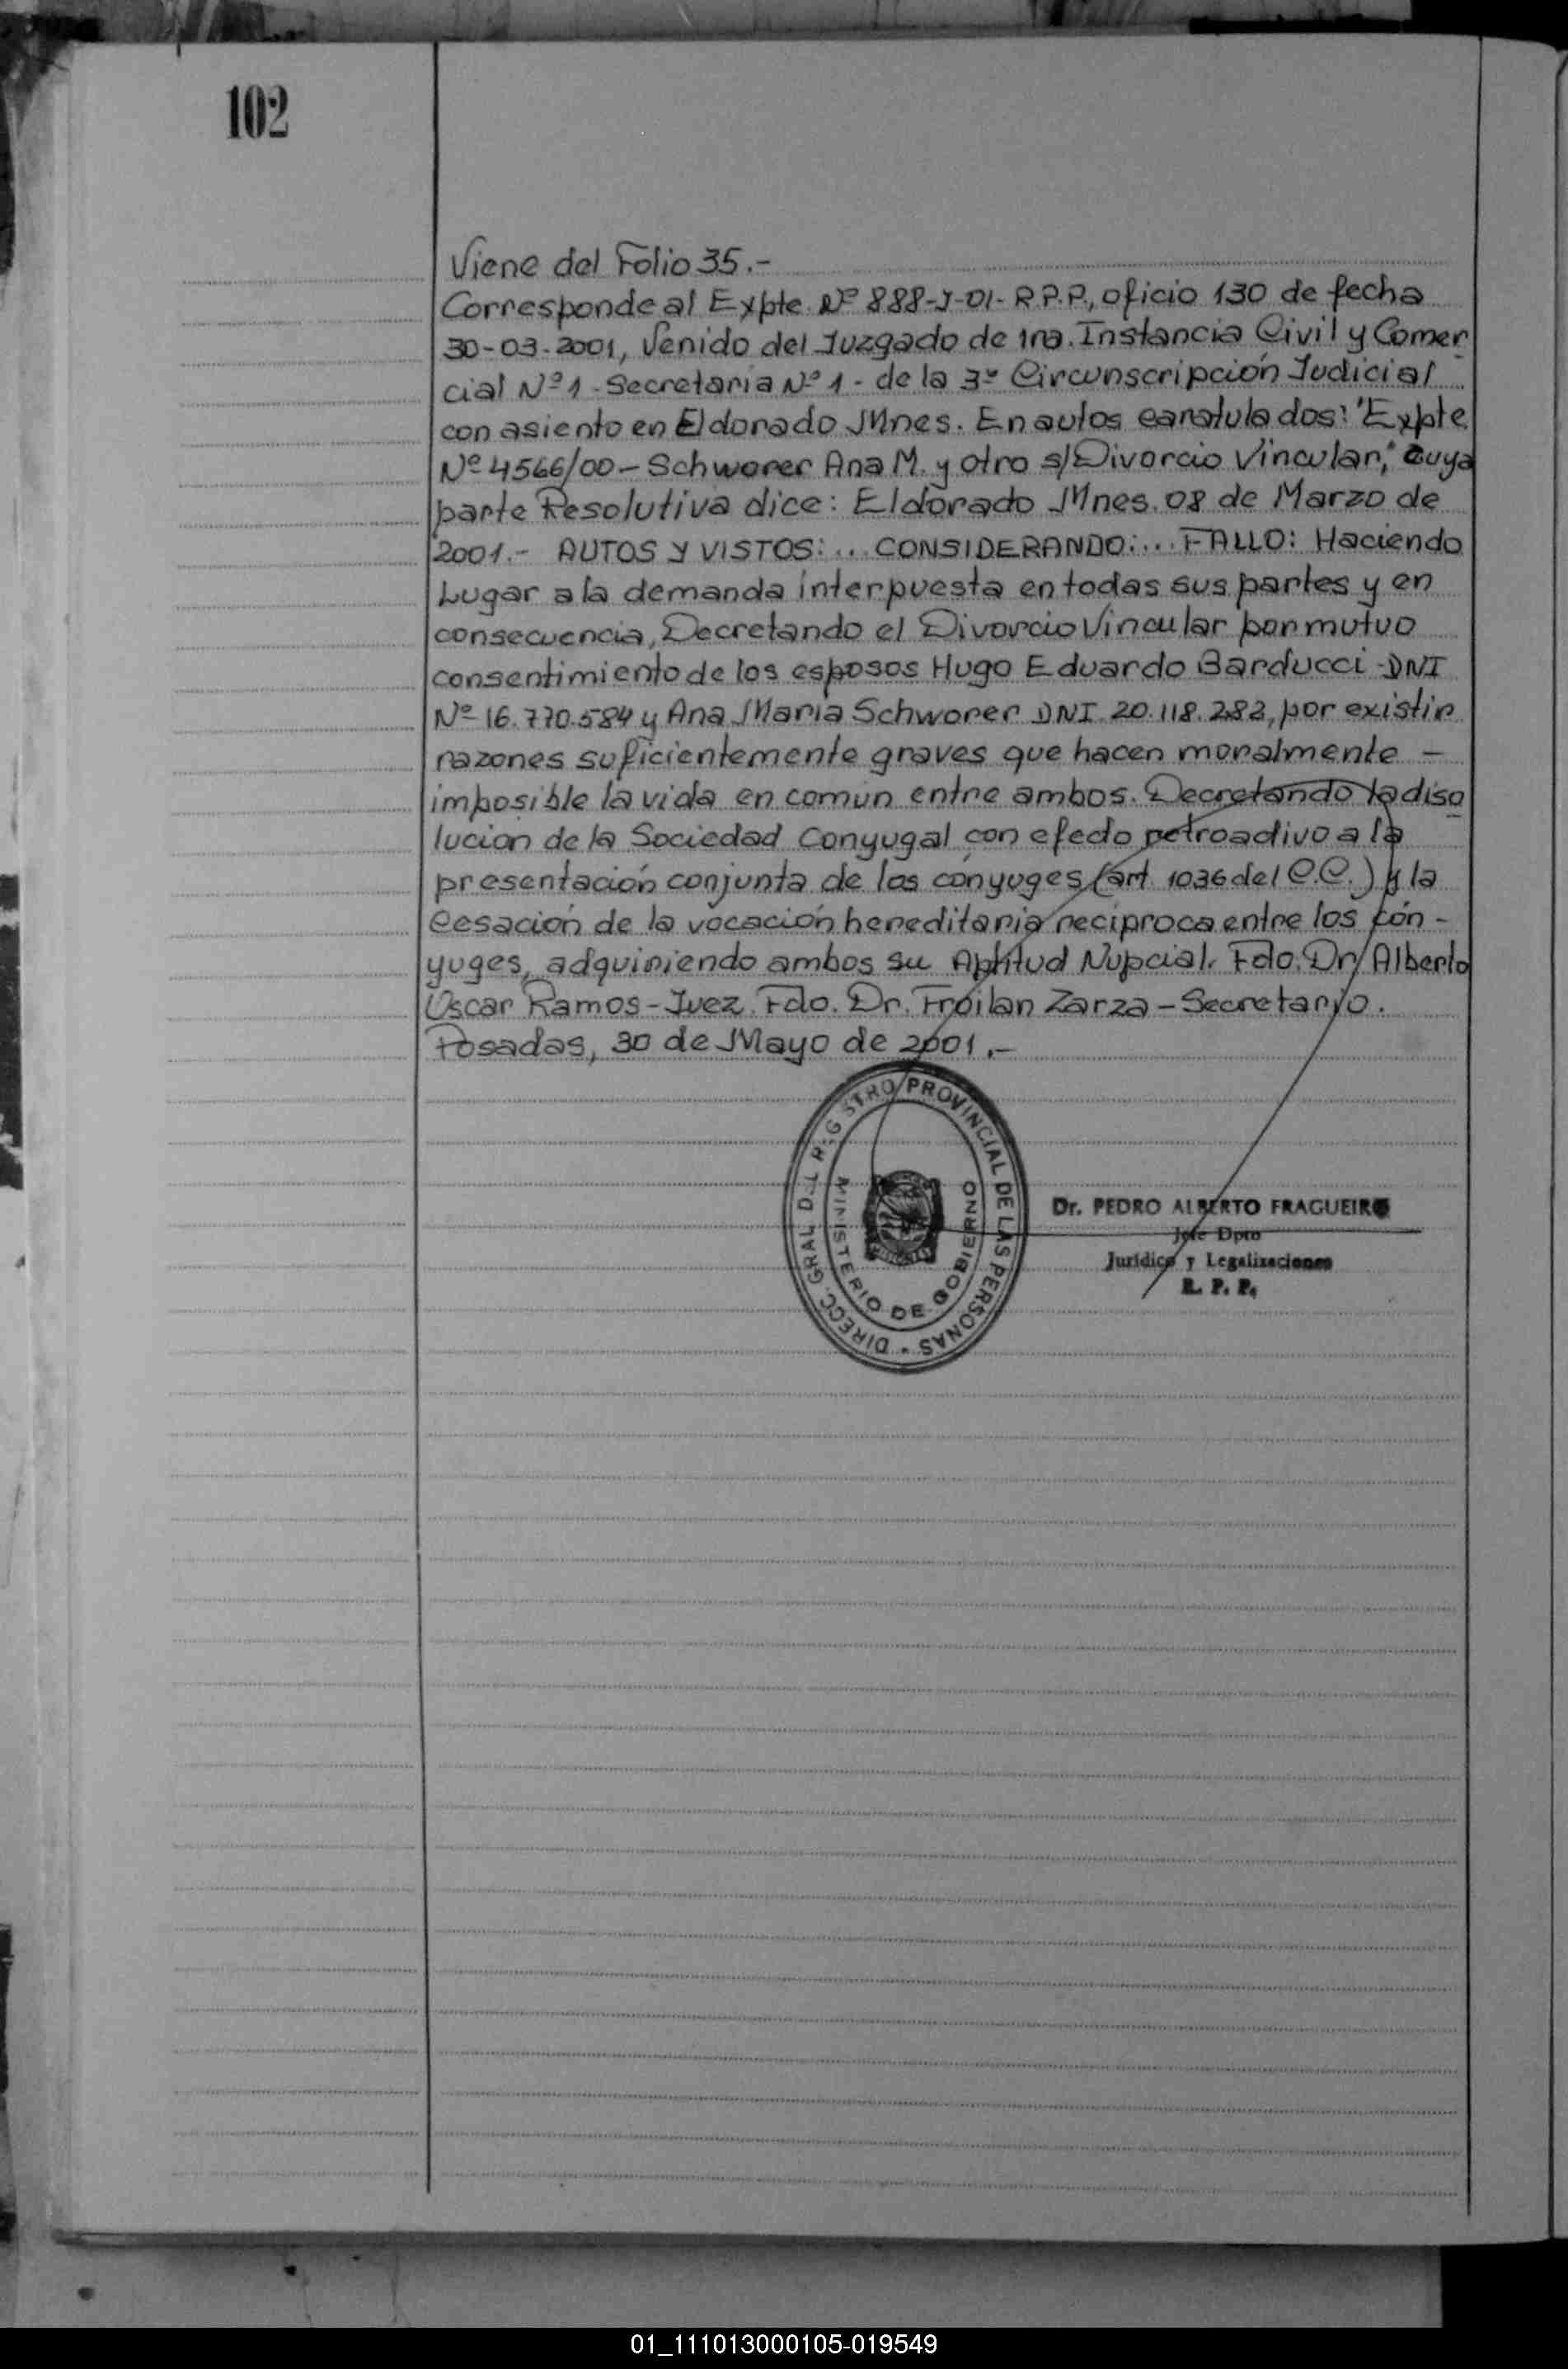 102
Viene del Folio 35.-
Corresponde al Expte. Nº 888-J-01- R.P.P., oficio 130 de fecha
30-03-2001, Venido del Juzgado de 1ra. Instancia Civil y Comer
cial Nº 1 - Secretaria Nº 1 - de la 3º Circunscripción Judicial
con asiento en Eldorado Mnes. En autos caratulados: "Expte
Nº 4566/00 - Schworer Ana M. y otro s/Divorcio Vincular," cuya
parte Resolutiva dice: Eldorado Mnes. 08 de Marzo de
2001.- AUTOS Y VISTOS:... CONSIDERANDO:... FALLO: Haciendo
Lugar a la demanda interpuesta en todas sus partes y en
consecuencia, Decretando el Divorcio Vincular por mutuo
consentimiento de los esposos Hugo Eduardo Barducci - DNI
Nº 16.770.584 y Ana Maria Schworer DNI. 20.118.282, por existir
razones suficientemente graves que hacen moralmente -
imposible la vida en común entre ambos. Decretando la diso
lucion de la Sociedad Conyugal con efecto retroactivo a la
presentación conjunta de los cónyuges (art. 1036 del C.C.) y la
Cesación de la vocación hereditaria reciproca entre los cón-
yuges, adquiriendo ambos su Aptitud Nupcial. Fdo. Dr. Alberto
Oscar Ramos - Juez. Fdo. Dr. Froilan Zarza - Secretario.
Posadas, 30 de Mayo de 2001.-
DIRECC. GRAL. DEL REGISTRO PROVINCIAL DE LAS PERSONAS
MINISTERIO DE GOBIERNO
Dr. PEDRO ALBERTO FRAGUEIRO
Jefe Dpto
Jurídico y Legalizaciones
R. P. P.
01_111013000105-019549